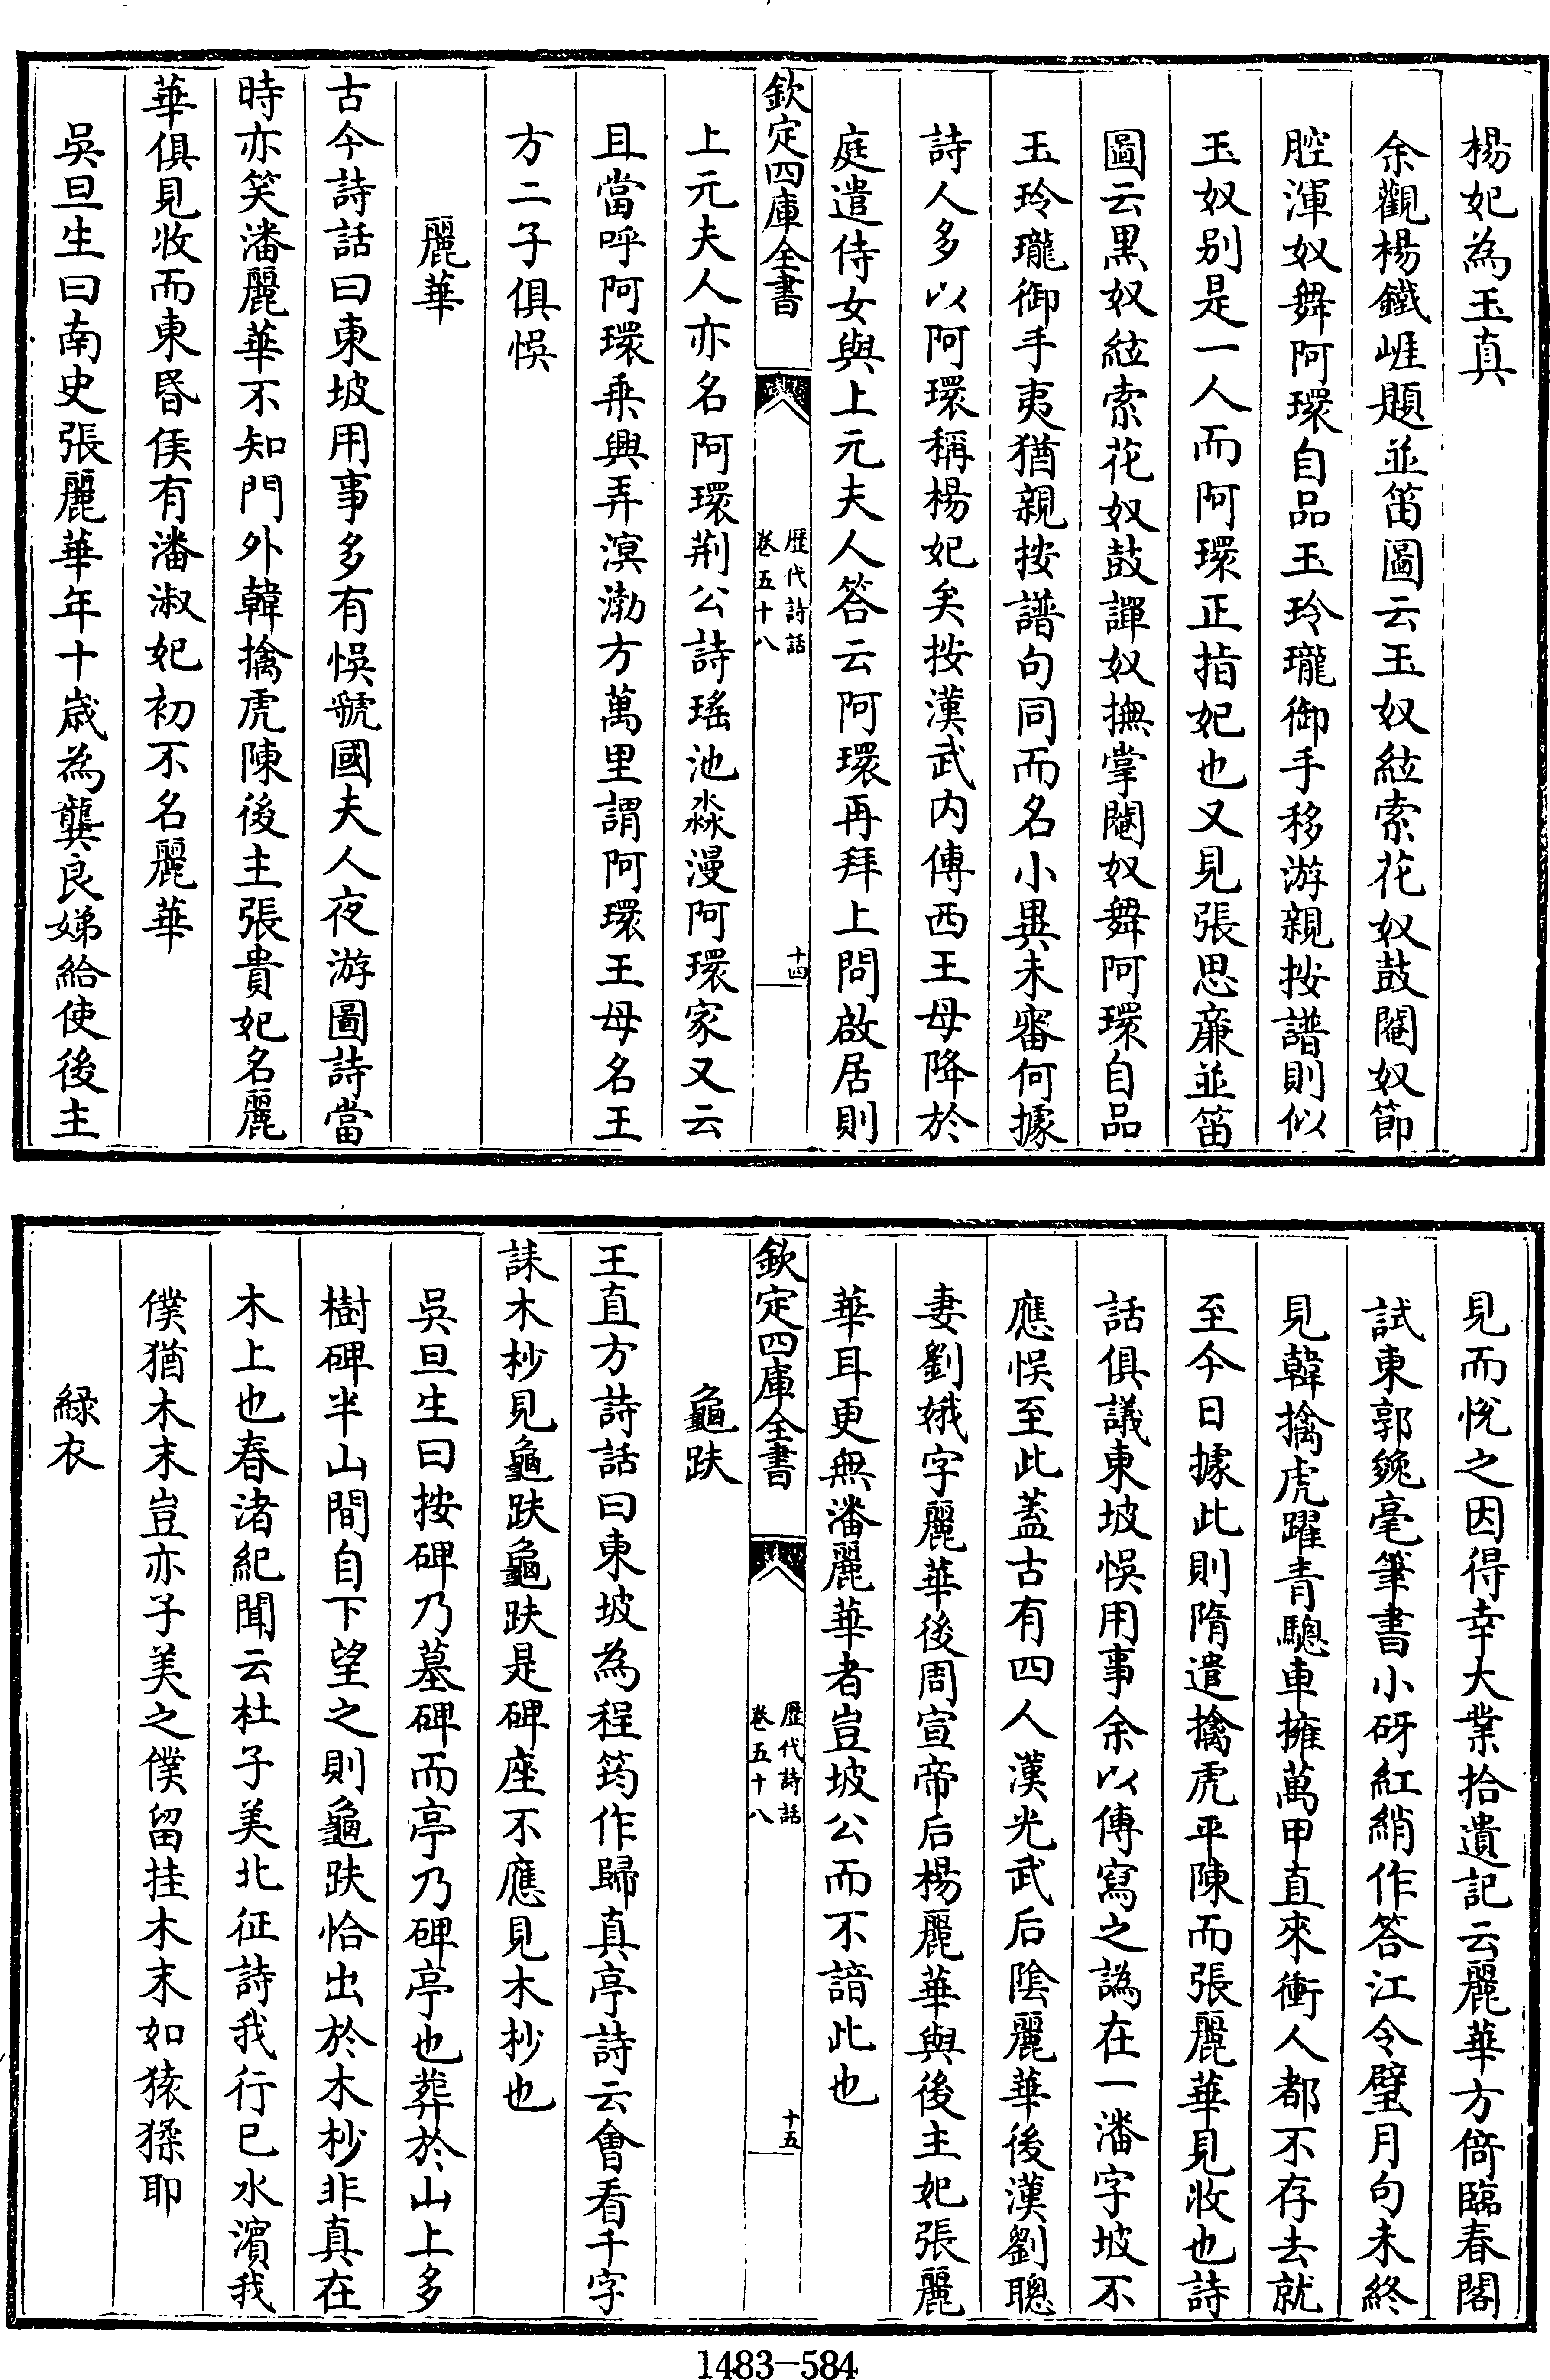 楊妃為玉真
余觀楊鐵崖題並笛圖云玉奴絃索花奴鼓閹奴節
腔渾奴舞阿環自品玉玲瓏御手移游親按譜則似
玉奴别是一人而阿環正指妃也又見張思廉並笛
圖云黒奴絃索花奴鼓譚奴撫掌閹奴舞阿環自品
玉玲瓏御手夷猶親按譜句同而名小異未審何據
詩人多以阿環稱楊妃矣按漢武内傳西王母降於
庭遣侍女與上元夫人答云阿環再拜上問啟居則
欽定四庫全書
歴代詩話
卷五十八
十四
上元夫人亦名阿環荆公詩瑤池淼漫阿環家又云
且當呼阿環乗興弄溟渤方萬里謂阿環王母名王
方二子俱悞
麗華
古今詩話曰東坡用事多有悞虢國夫人夜游圖詩當
時亦笑潘麗華不知門外韓擒虎陳後主張貴妃名麗
華俱見收而東昏侯有潘淑妃初不名麗華
吳旦生曰南史張麗華年十歳為龔良娣給使後主
見而悅之因得幸大業拾遺記云麗華方倚臨春閣
試東郭㕙毫筆書小砑紅綃作答江令璧月句未終
見韓擒虎躍青驄車擁萬甲直來衝人都不存去就
至今日據此則隋遣擒虎平陳而張麗華見收也詩
話俱議東坡悞用事余以傳寫之譌在一潘字坡不
應悞至此蓋古有四人漢光武后陰麗華後漢劉聰
妻劉娥字麗華後周宣帝后楊麗華與後主妃張麗
華耳更無潘麗華者豈坡公而不諳此也
欽定四庫全書
歴代詩話
卷五十八
十五
龜趺
王直方詩話曰東坡為程筠作歸真亭詩云會看千字
誄木杪見龜趺龜趺是碑座不應見木杪也
吳旦生曰按碑乃墓碑而亭乃碑亭也葬於山上多
樹碑半山間自下望之則龜趺恰出於木杪非真在
木上也春渚紀聞云杜子美北征詩我行已水濱我
僕猶木末豈亦子美之僕留挂木末如猿猱耶
緑衣
1483-584